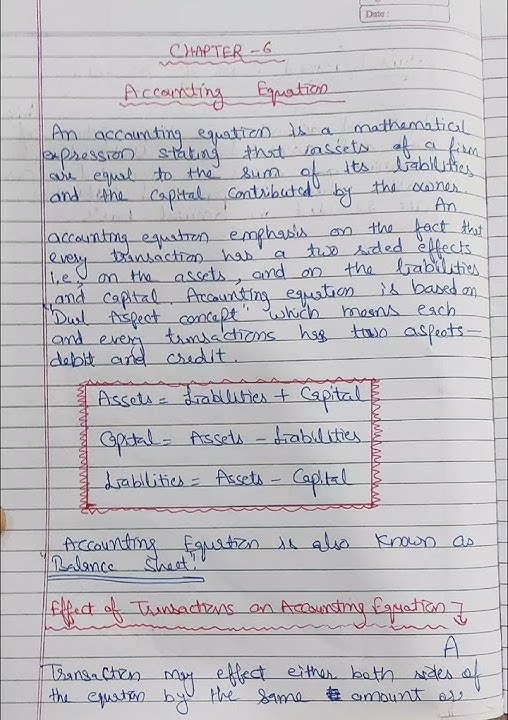 Date :
CHAPTER - 6
Accounting Equation
An accounting equation is a mathematical
expression stating that assets of a firm
are equal to the sum of its liabilities
and the capital contributed by the owner.
An
accounting equation emphasis on the fact that
every transaction has a two sided effects
i.e, on the assets, and on the liabilities
and capital. Accounting equation is based on
"Dual Aspect concept" which means each
and every transactions has two aspects-
debit and credit.
Assets = Liabilities + Capital
Capital = Assets - Liabilities
Liabilities = Assets - Capital
Accounting Equation is also known as
"Balance Sheet".
Effect of Transactions on Accounting Equation
A
Transaction may effect either both sides of
the equation by the same amount or